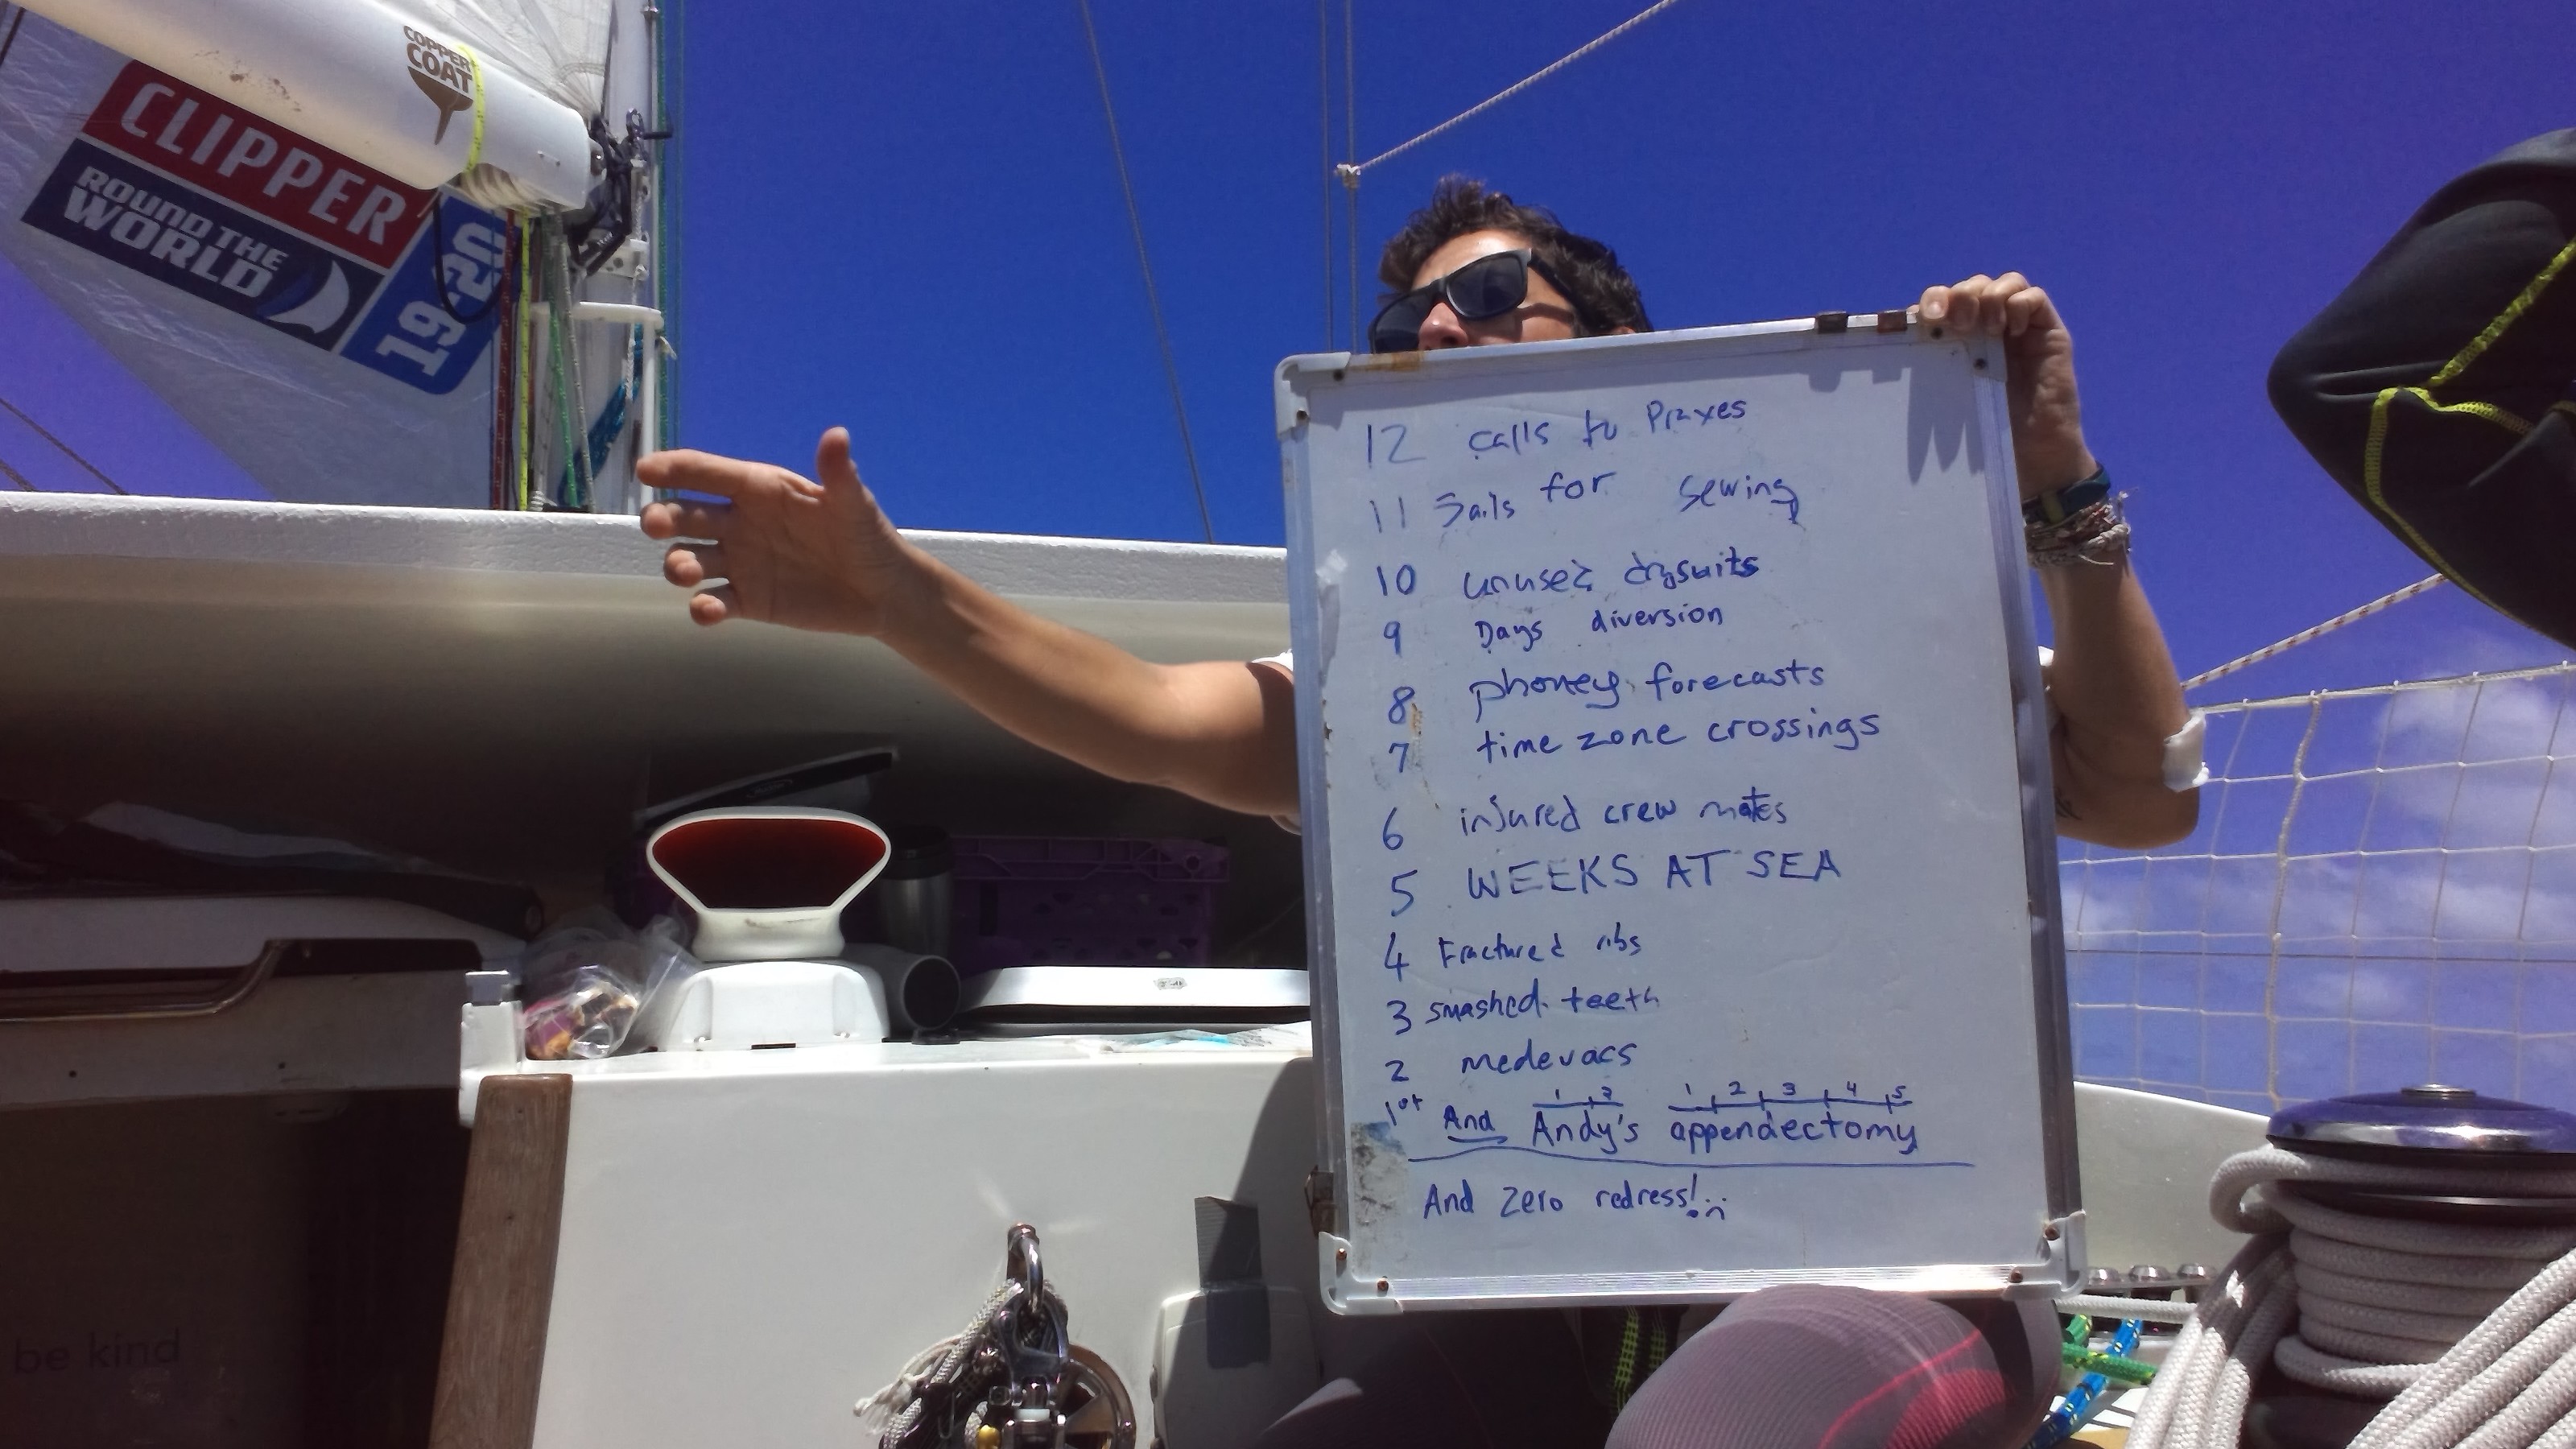 COPPER
COAT
CLIPPER
ROUND THE
WORLD
19-20
12 calls to Praxes
11 Sails for sewing
10 unused drysuits
9 Days diversion
8 phoney forecasts
7 time zone crossings
6 injured crew mates
5 WEEKS AT SEA
4 Fractured ribs
3 smashed teeth
2 medevacs
1 2 1 2 3 4 5
1st And Andy's appendectomy
And Zero redress! :(
be kind